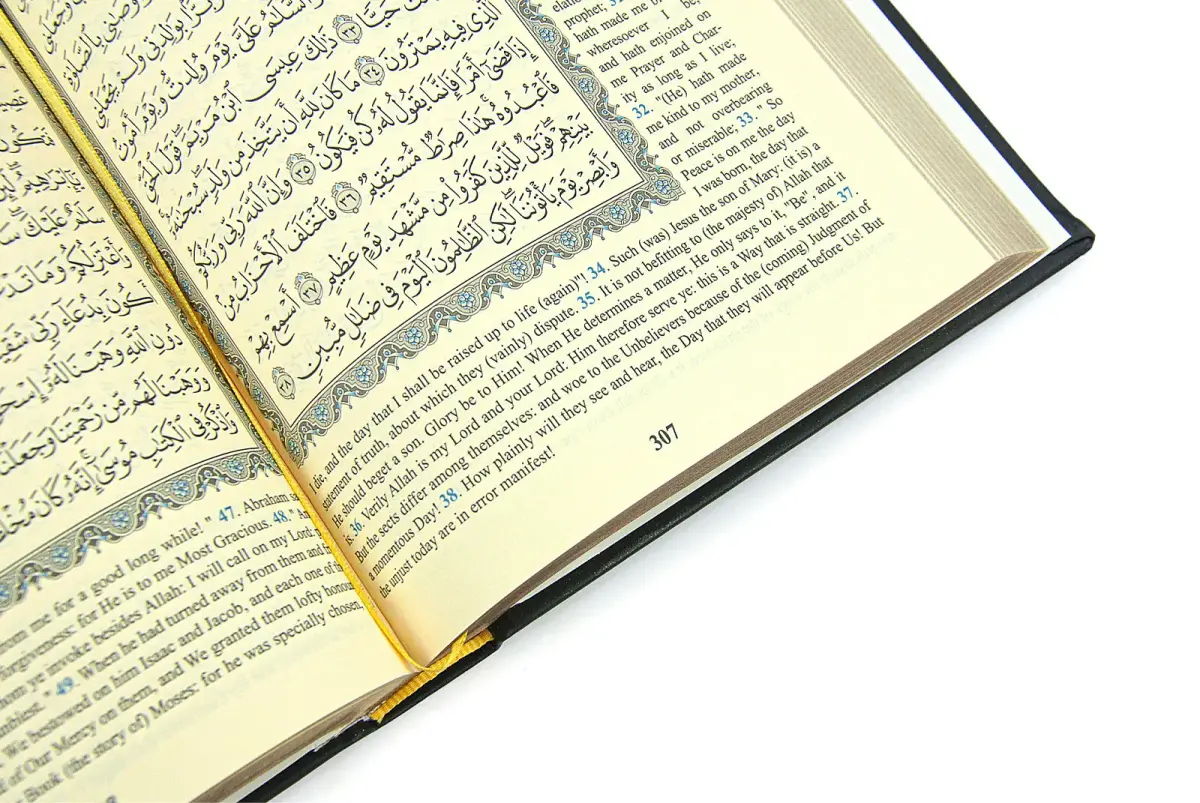 وَأَوْصَٰنِى بِٱلصَّلَوٰةِ
وَبَرًّۢا بِوَٰلِدَتِى وَلَمْ يَجْعَلْنِى
وَٱلسَّلَٰمُ عَلَىَّ يَوْمَ وُلِدتُّ وَيَوْمَ أَمُوتُ
حَيًّا ٣٣ ذَٰلِكَ عِيسَى ٱبْنُ مَرْيَمَ قَوْلَ ٱلْحَقِّ
ٱلَّذِى فِيهِ يَمْتَرُونَ ٣٤ مَا كَانَ لِلَّهِ أَن يَتَّخِذَ مِن وَلَدٍ سُبْحَٰنَهُۥٓ
إِذَا قَضَىٰٓ أَمْرًا فَإِنَّمَا يَقُولُ لَهُۥ كُن فَيَكُونُ ٣٥ وَإِنَّ ٱللَّهَ رَبِّى وَرَبُّكُمْ
فَٱعْبُدُوهُ هَٰذَا صِرَٰطٌ مُّسْتَقِيمٌ ٣٦ فَٱخْتَلَفَ ٱلْأَحْزَابُ مِنۢ
بَيْنِهِمْ فَوَيْلٌ لِّلَّذِينَ كَفَرُوا۟ مِن مَّشْهَدِ يَوْمٍ عَظِيمٍ ٣٧ أَسْمِعْ بِهِمْ
وَأَبْصِرْ يَوْمَ يَأْتُونَنَا لَٰكِنِ ٱلظَّٰلِمُونَ ٱلْيَوْمَ فِى ضَلَٰلٍ مُّبِينٍ ٣٨
prophet;
hath made me
wheresoever I be,
and hath enjoined on
me Prayer and Char-
ity as long as I live;
32. "(He) hath made
me kind to my mother,
and not overbearing
or miserable; 33. " So
Peace is on me the day
I was born, the day that
I die, and the day that I shall be raised up to life (again)"! 34. Such (was) Jesus the son of Mary: (it is) a
statement of truth, about which they (vainly) dispute. 35. It is not befitting to (the majesty of) Allah that
He should beget a son. Glory be to Him! When He determines a matter, He only says to it, "Be", and it
is. 36. Verily Allah is my Lord and your Lord: Him therefore serve ye: this is a Way that is straight. 37.
But the sects differ among themselves: and woe to the Unbelievers because of the (coming) Judgment of
a momentous Day! 38. How plainly will they see and hear, the Day that they will appear before Us! But
the unjust today are in error manifest!
307
سَلَٰمٌ عَلَيْكَ
وَأَعْتَزِلُكُمْ وَمَا تَدْعُونَ
دُونِ ٱللَّهِ وَهَبْنَا لَهُۥٓ إِسْحَٰقَ
وَوَهَبْنَا لَهُم مِّن رَّحْمَتِنَا وَجَعَلْنَا
وَٱذْكُرْ فِى ٱلْكِتَٰبِ مُوسَىٰٓ إِنَّهُۥ كَانَ
from me for a good long while! " 47. Abraham
forgiveness: for He is to me Most Gracious. 48. "
whom ye invoke besides Allah: I will call on my Lord:
" 49. When he had turned away from them and
We bestowed on him Isaac and Jacob, and each one of
of Our Mercy on them, and We granted them lofty
Book (the story of) Moses: for he was specially chosen,